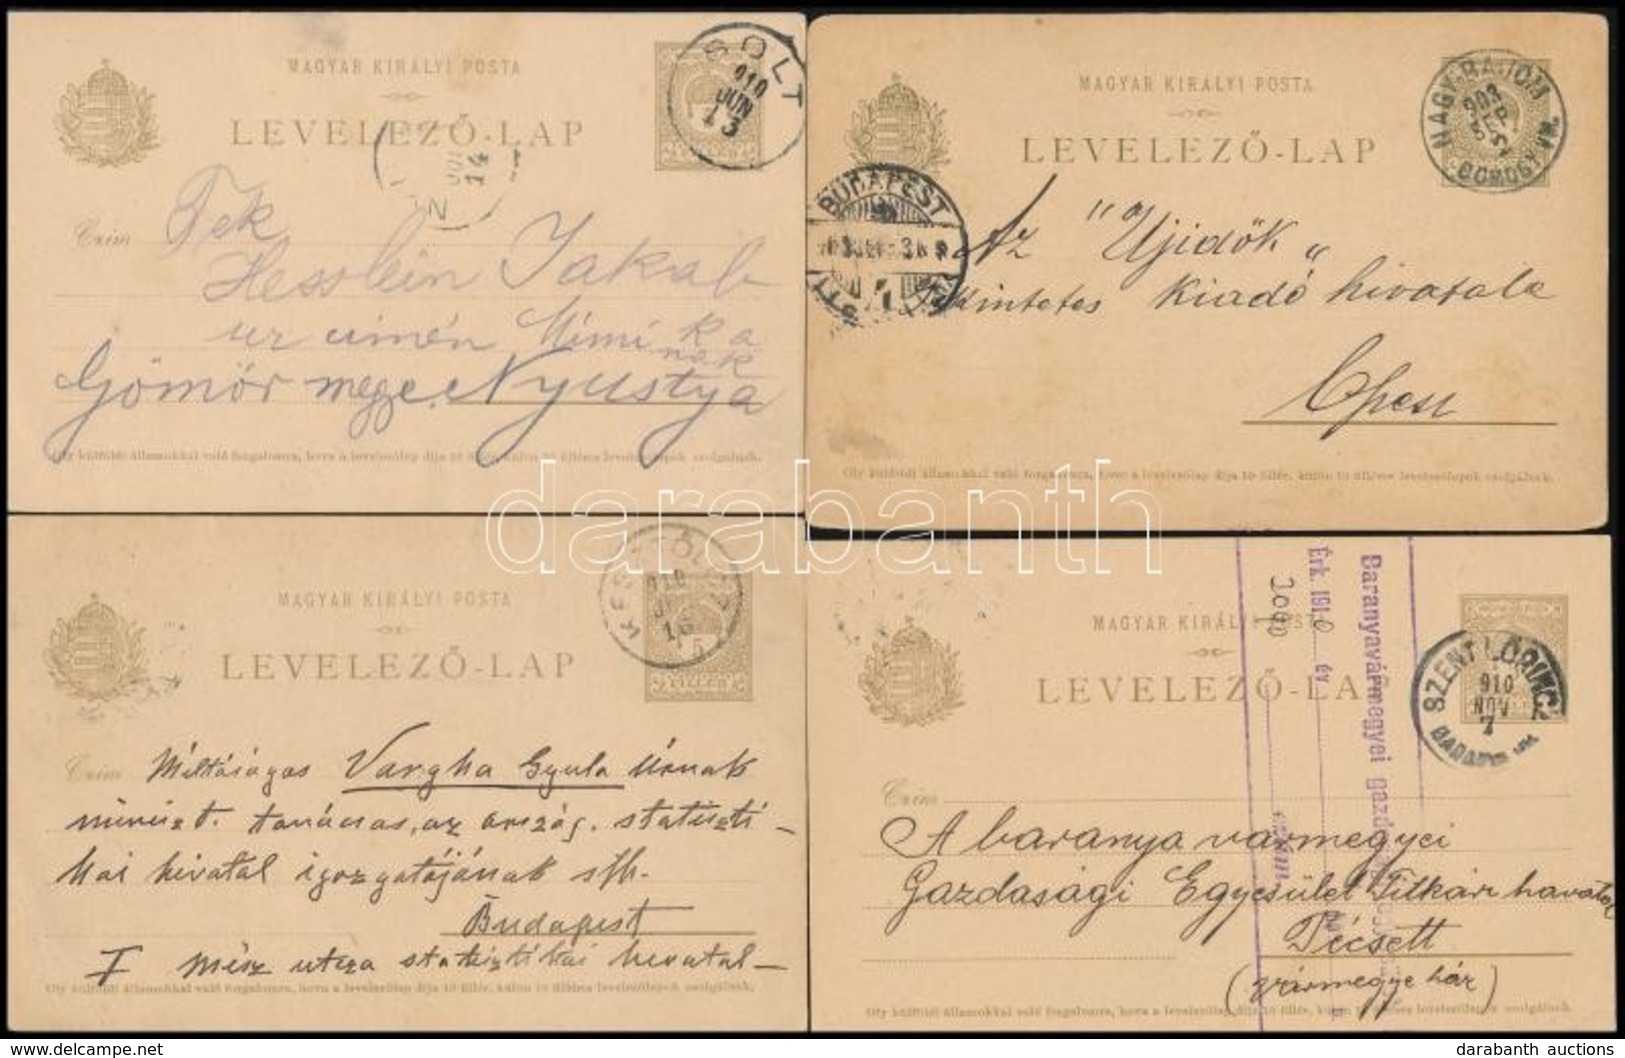 MAGYAR KIRÁLYI POSTA
LEVELEZŐ-LAP
SOLT
910
JUN
13
JUN
14
Czím
Tek
Hesslein Jakab
ur címén Mimi ka
nak
Gömör megye. Nyustya
Oly külföldi államokkal való forgalomra, hova a levelezőlap díja 10 fillér, külön 10 filléres levelezőlapok szolgálnak.
MAGYAR KIRÁLYI POSTA
LEVELEZŐ-LAP
NAGY-BAJOM
903
SEP
SOMOGY VM.
BUDAPEST
Az "Ujidők"
tekintetes kiadó hivatala
Bpest
Oly külföldi államokkal való forgalomra, hova a levelezőlap díja 10 fillér, külön 10 filléres levelezőlapok szolgálnak.
darabanth
MAGYAR KIRÁLYI POSTA
LEVELEZŐ-LAP
910
16
Czím
Méltóságos Vargha Gyula Úrnak
miniszt. tanácsos, az ország. statiszti-
kai hivatal igazgatójának
Budapest
I mész utcza statisztikai hivatal-
Oly külföldi államokkal való forgalomra, hova a levelezőlap díja 10 fillér, külön 10 filléres levelezőlapok szolgálnak.
MAGYAR KIRÁLYI POSTA
LEVELEZŐ-LAP
SZENT LŐRINCZ
910
NOV
7
BARANYA VM.
Baranyavármegyei
Érk. 1910 év
Czím
A baranya vármegyei
Gazdasági Egyesület Titkár havatal
Pécsett
(vármegye ház)
Oly külföldi államokkal való forgalomra, hova a levelezőlap díja 10 fillér, külön 10 filléres levelezőlapok szolgálnak.
www.delcampe.net
darabanth auctions